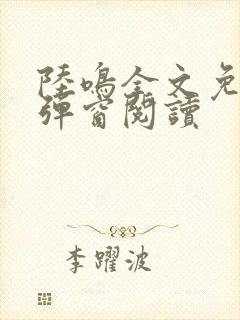 陸鳴全文免
彈窗閱讀
李躍波